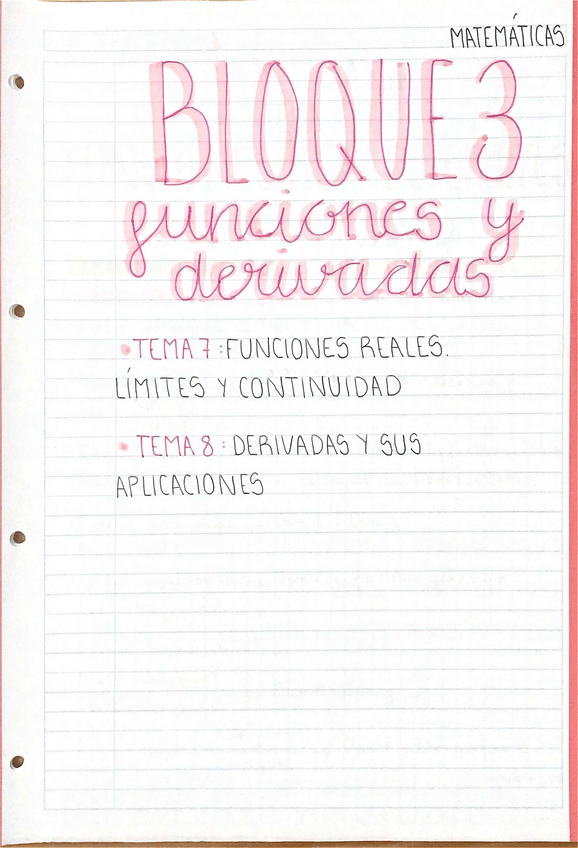 MATEMÁTICAS
BLOQUE 3
funciones y
derivadas
• TEMA 7: FUNCIONES REALES.
LÍMITES Y CONTINUIDAD
• TEMA 8: DERIVADAS Y SUS
APLICACIONES